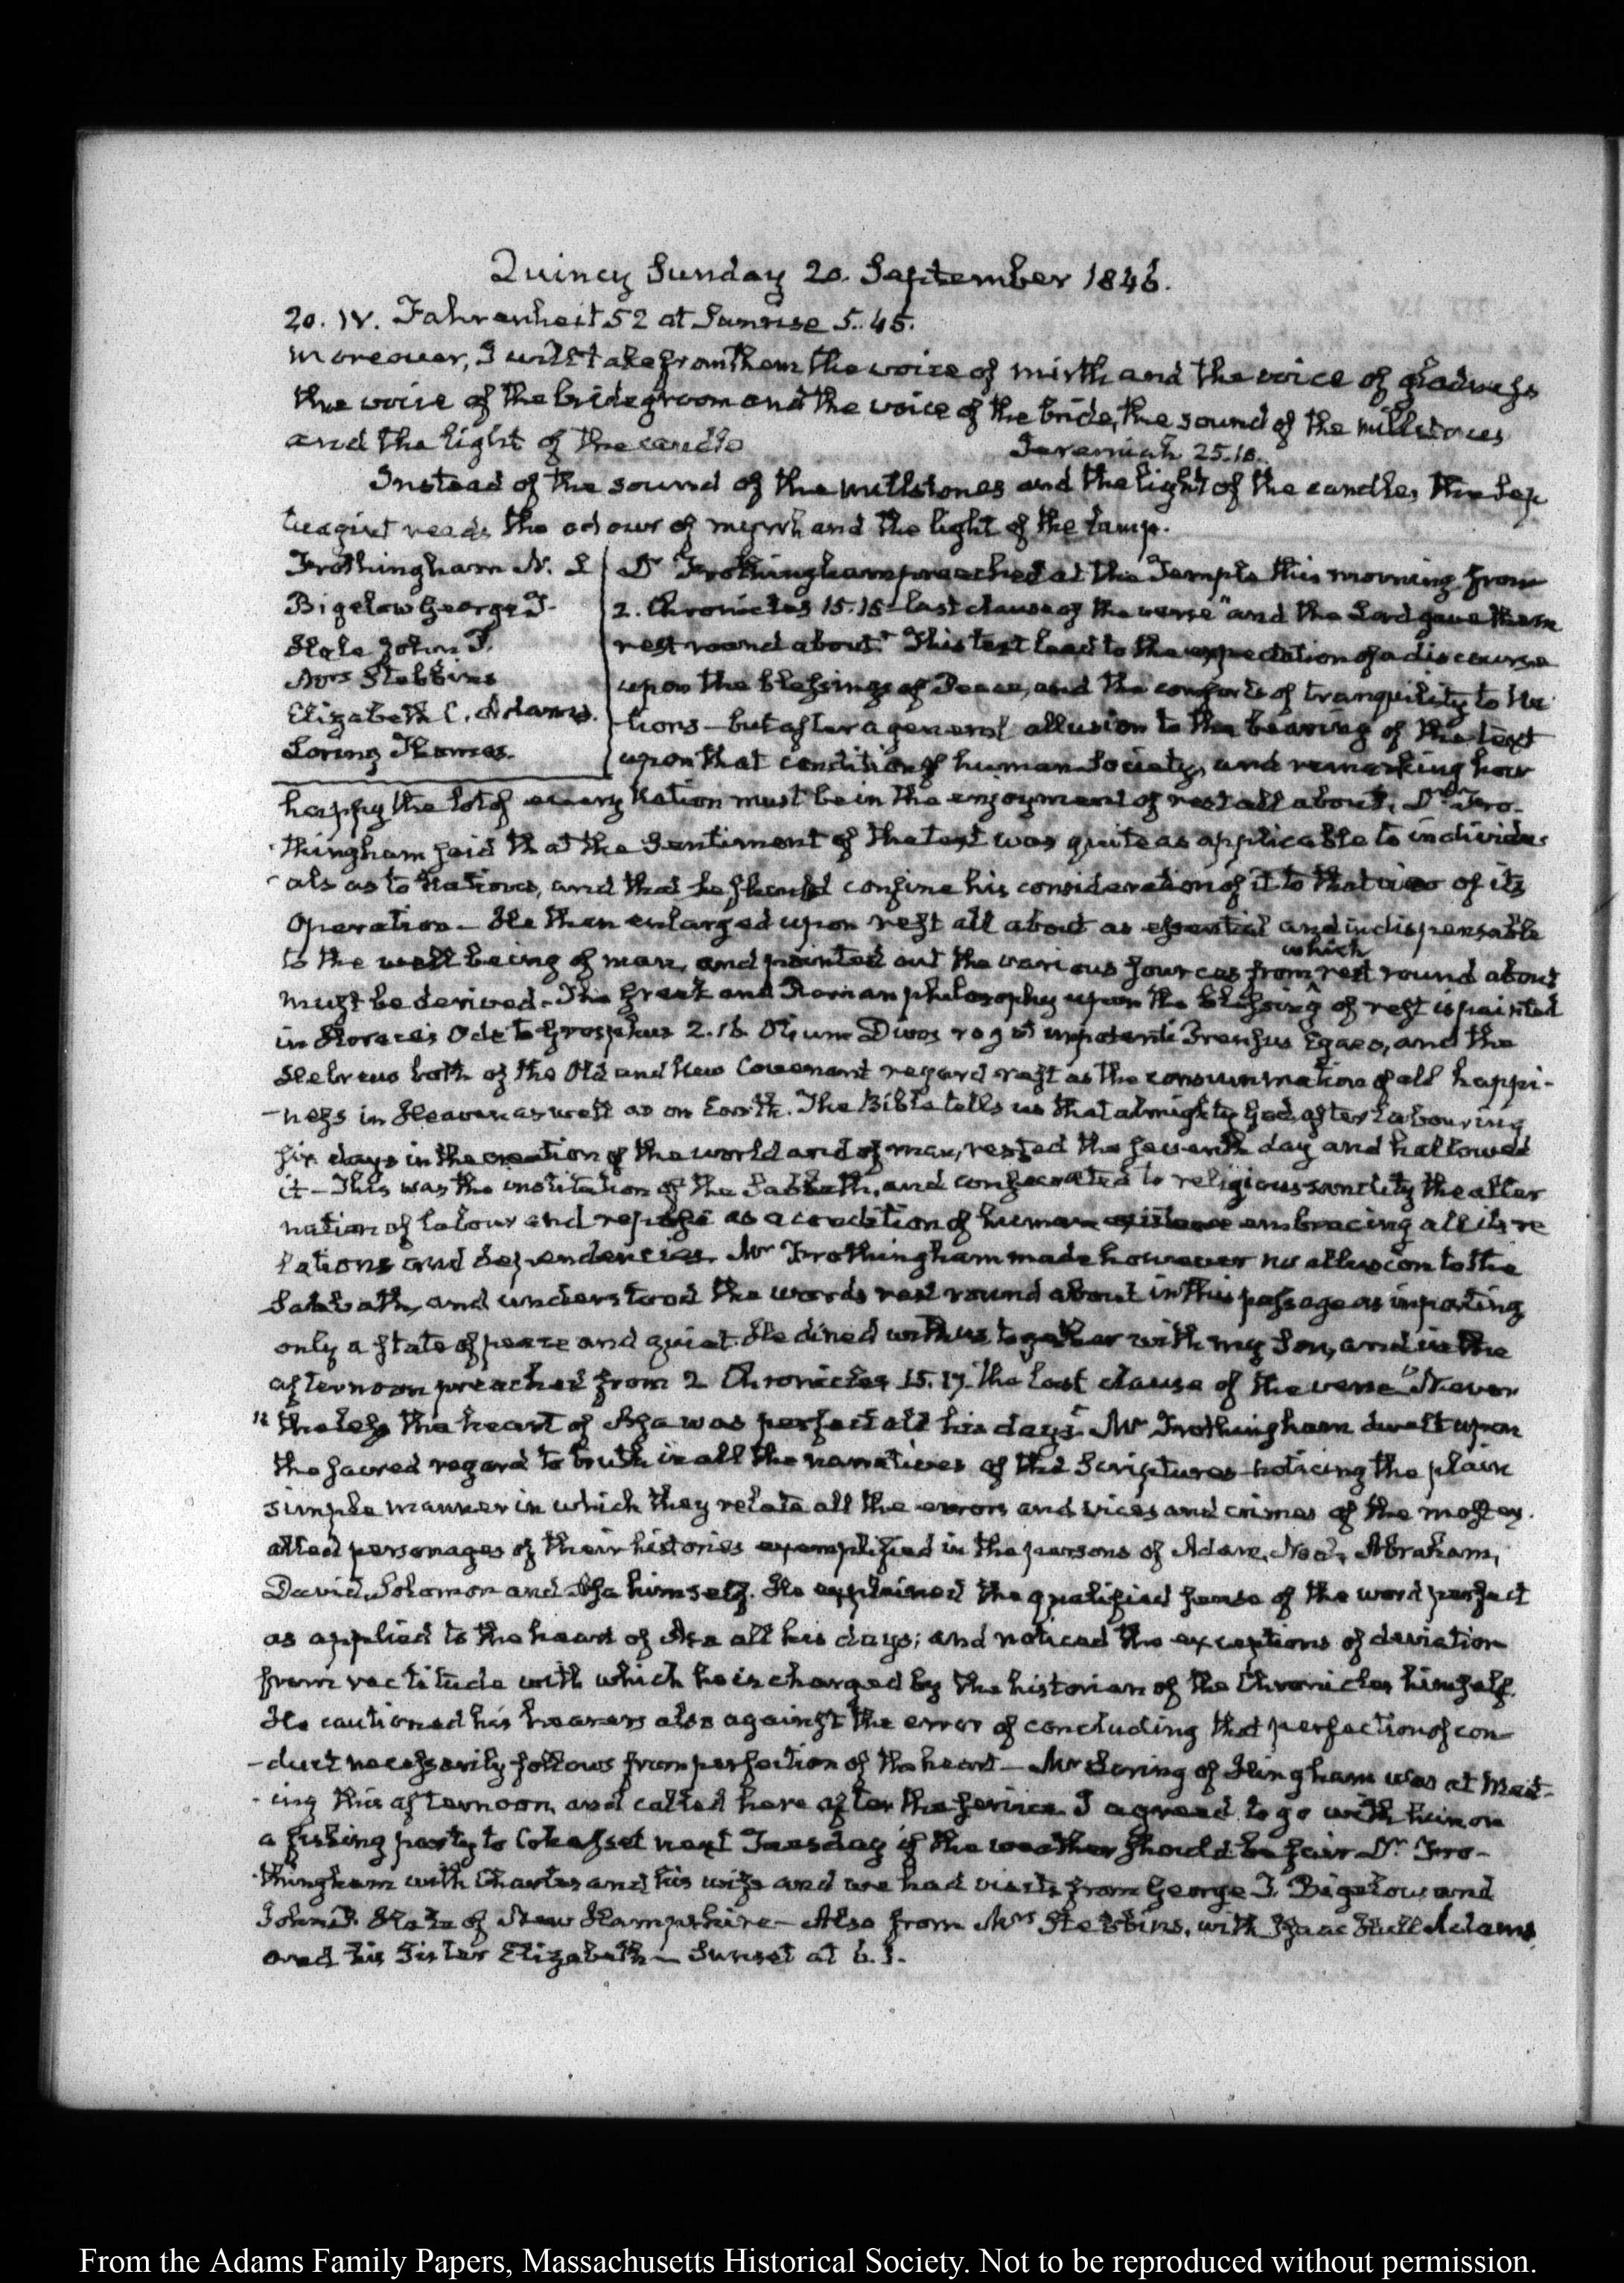 Quincy Sunday 20. September 1846.
20. IV. Fahrenheit 52 at Sunrise 5.45.
Moreover, I will take from them the voice of mirth and the voice of gladness
the voice of the bridegroom and the voice of the bride, the sound of the millstones
and the light of the candle
Jeremiah 25.10.
Instead of the sound of the millstones and the light of the candle, the Sep
tuagint reads the odour of myrrh and the light of the lamp.
Frothingham N. L
Bigelow George T.
Hale John P.
Mrs Stebbins
Elizabeth C. Adams.
Loring Thomas.
Dr Frothingham preached at the Temple this morning from
2. Chronicles 15.15 last clause of the verse "and the Lord gave them
rest round about." This text lead to the expectation of a discourse
upon the blessings of Peace, and the comforts of tranquility to Na
tions — but after a general allusion to the bearing of the text
upon that condition of human Society, and remarking how
happy the lot of every Nation must be in the enjoyment of rest all about, Dr Fro-
thingham said that the Sentiment of the text was quite as applicable to individu-
als as to Nations, and that he should confine his consideration of it to that view of its
Operation — He then enlarged upon rest all about as essential and indispensable
to the well being of man, and pointed out the various sources from which rest round about
must be derived. The Greek and Roman philosophy upon the blessing of rest is painted
in Horace's Ode to Grosphus 2.16 Otium Divos rogat in patenti Prensus Egaeo, and the
Hebrews both of the Old and New Covenant regard rest as the consummation of all happi-
-ness in Heaven as well as on Earth. The Bible tells us that almighty God, after labouring
six days in the creation of the world and of man, rested the seventh day and hallowed
it — This was the institution of the Sabbath, and consecrated to religious sanctity the alter
nation of labour and repose as a condition of human existence embracing all its re
lations and dependencies. Mr Frothingham made however no allusion to the
Sabbath, and understood the words rest round about in this passage as importing
only a state of peace and quiet. He dined with us together with my Son, and in the
afternoon preached from 2 Chronicles 15.17. the last clause of the verse "Never
"theless the heart of Asa was perfect all his days." Mr Frothingham dwelt upon
the sacred regard to truth in all the narratives of the Scriptures noticing the plain
simple manner in which they relate all the errors and vices and crimes of the most ex-
alted personages of their histories exemplified in the persons of Adam, Noah, Abraham,
David, Solomon and Asa himself. He explained the qualified sense of the word perfect
as applied to the heart of Asa all his days; and noticed the exceptions of deviation
from rectitude with which he is charged by the historian of the Chronicles himself.
He cautioned his hearers also against the error of concluding that perfection of con-
-duct necessarily follows from perfection of the heart — Mr Loring of Hingham was at Meet-
-ing this afternoon and called here after the service. I agreed to go with him on
a fishing party to Cohasset next Tuesday if the weather should be fair. Dr Fro-
-thingham with Charles and his wife and we had visits from George T. Bigelow and
John P. Hale of New Hampshire — Also from Mrs Stebbins, with Isaac Hull Adams
and his Sister Elizabeth — Sunset at 6.1.
From the Adams Family Papers, Massachusetts Historical Society. Not to be reproduced without permission.